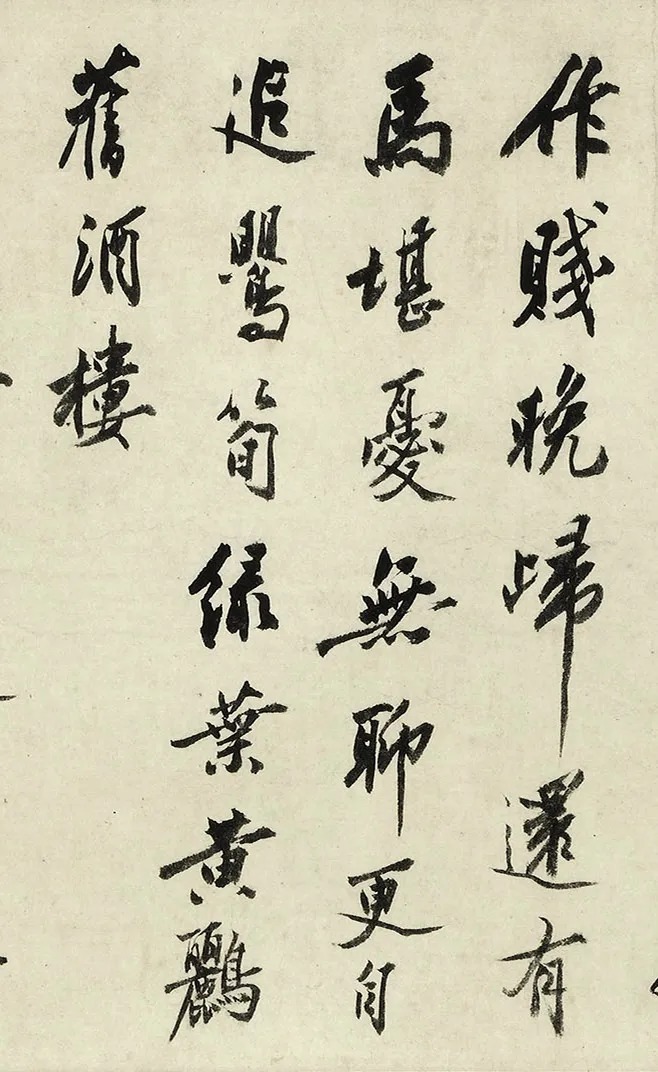 作賤晚歸還有
馬堪憂無聊更自
追鶯筍綠葉黃鸝
舊酒樓